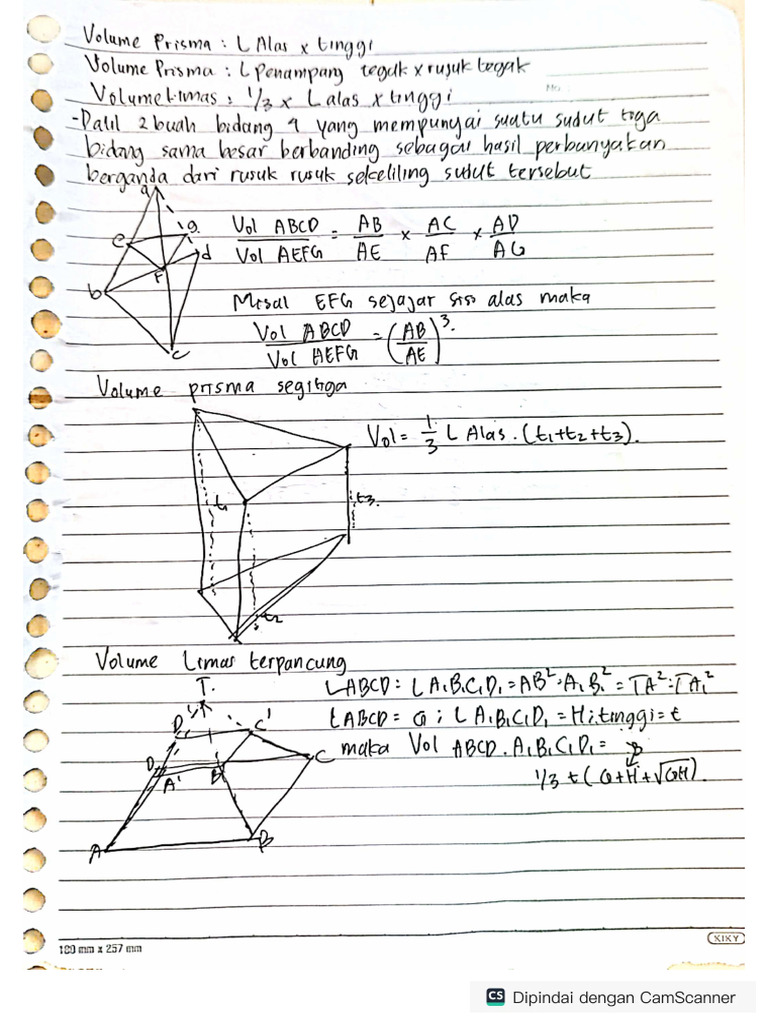 Volume Prisma : L Alas x tinggi
Volume Prisma : L penampang tegak x rusuk tegak
No :
Volume Limas : 1/3 x L alas x tinggi
- Dalil 2 buah bidang 4 yang mempunyai suatu sudut tiga
bidang sama besar berbanding sebagai hasil perbanyakan
berganda dari rusuk rusuk sekeliling sudut tersebut
a
e g d
F
b
c
Vol ABCD / Vol AEFG = AB/AE x AC/AF x AD/AG
Misal EFG sejajar sisi alas maka
Vol ABCD / Vol AEFG = (AB/AE)^3.
Volume prisma segitiga
Vol = 1/3 L Alas . (t1+t2+t3).
t1 t3.
t2
Volume Limas terpancung
T.
LABCD : L A1B1C1D1 = AB² : A1B1² = TA² : TA1²
LABCD = G ; L A1B1C1D1 = H ; tinggi = t
maka Vol ABCD . A1B1C1D1 =
1/3 t (G+H+√GH).
D' C'
D C
A' B'
A B
180 mm x 257 mm
KIKY
CS Dipindai dengan CamScanner